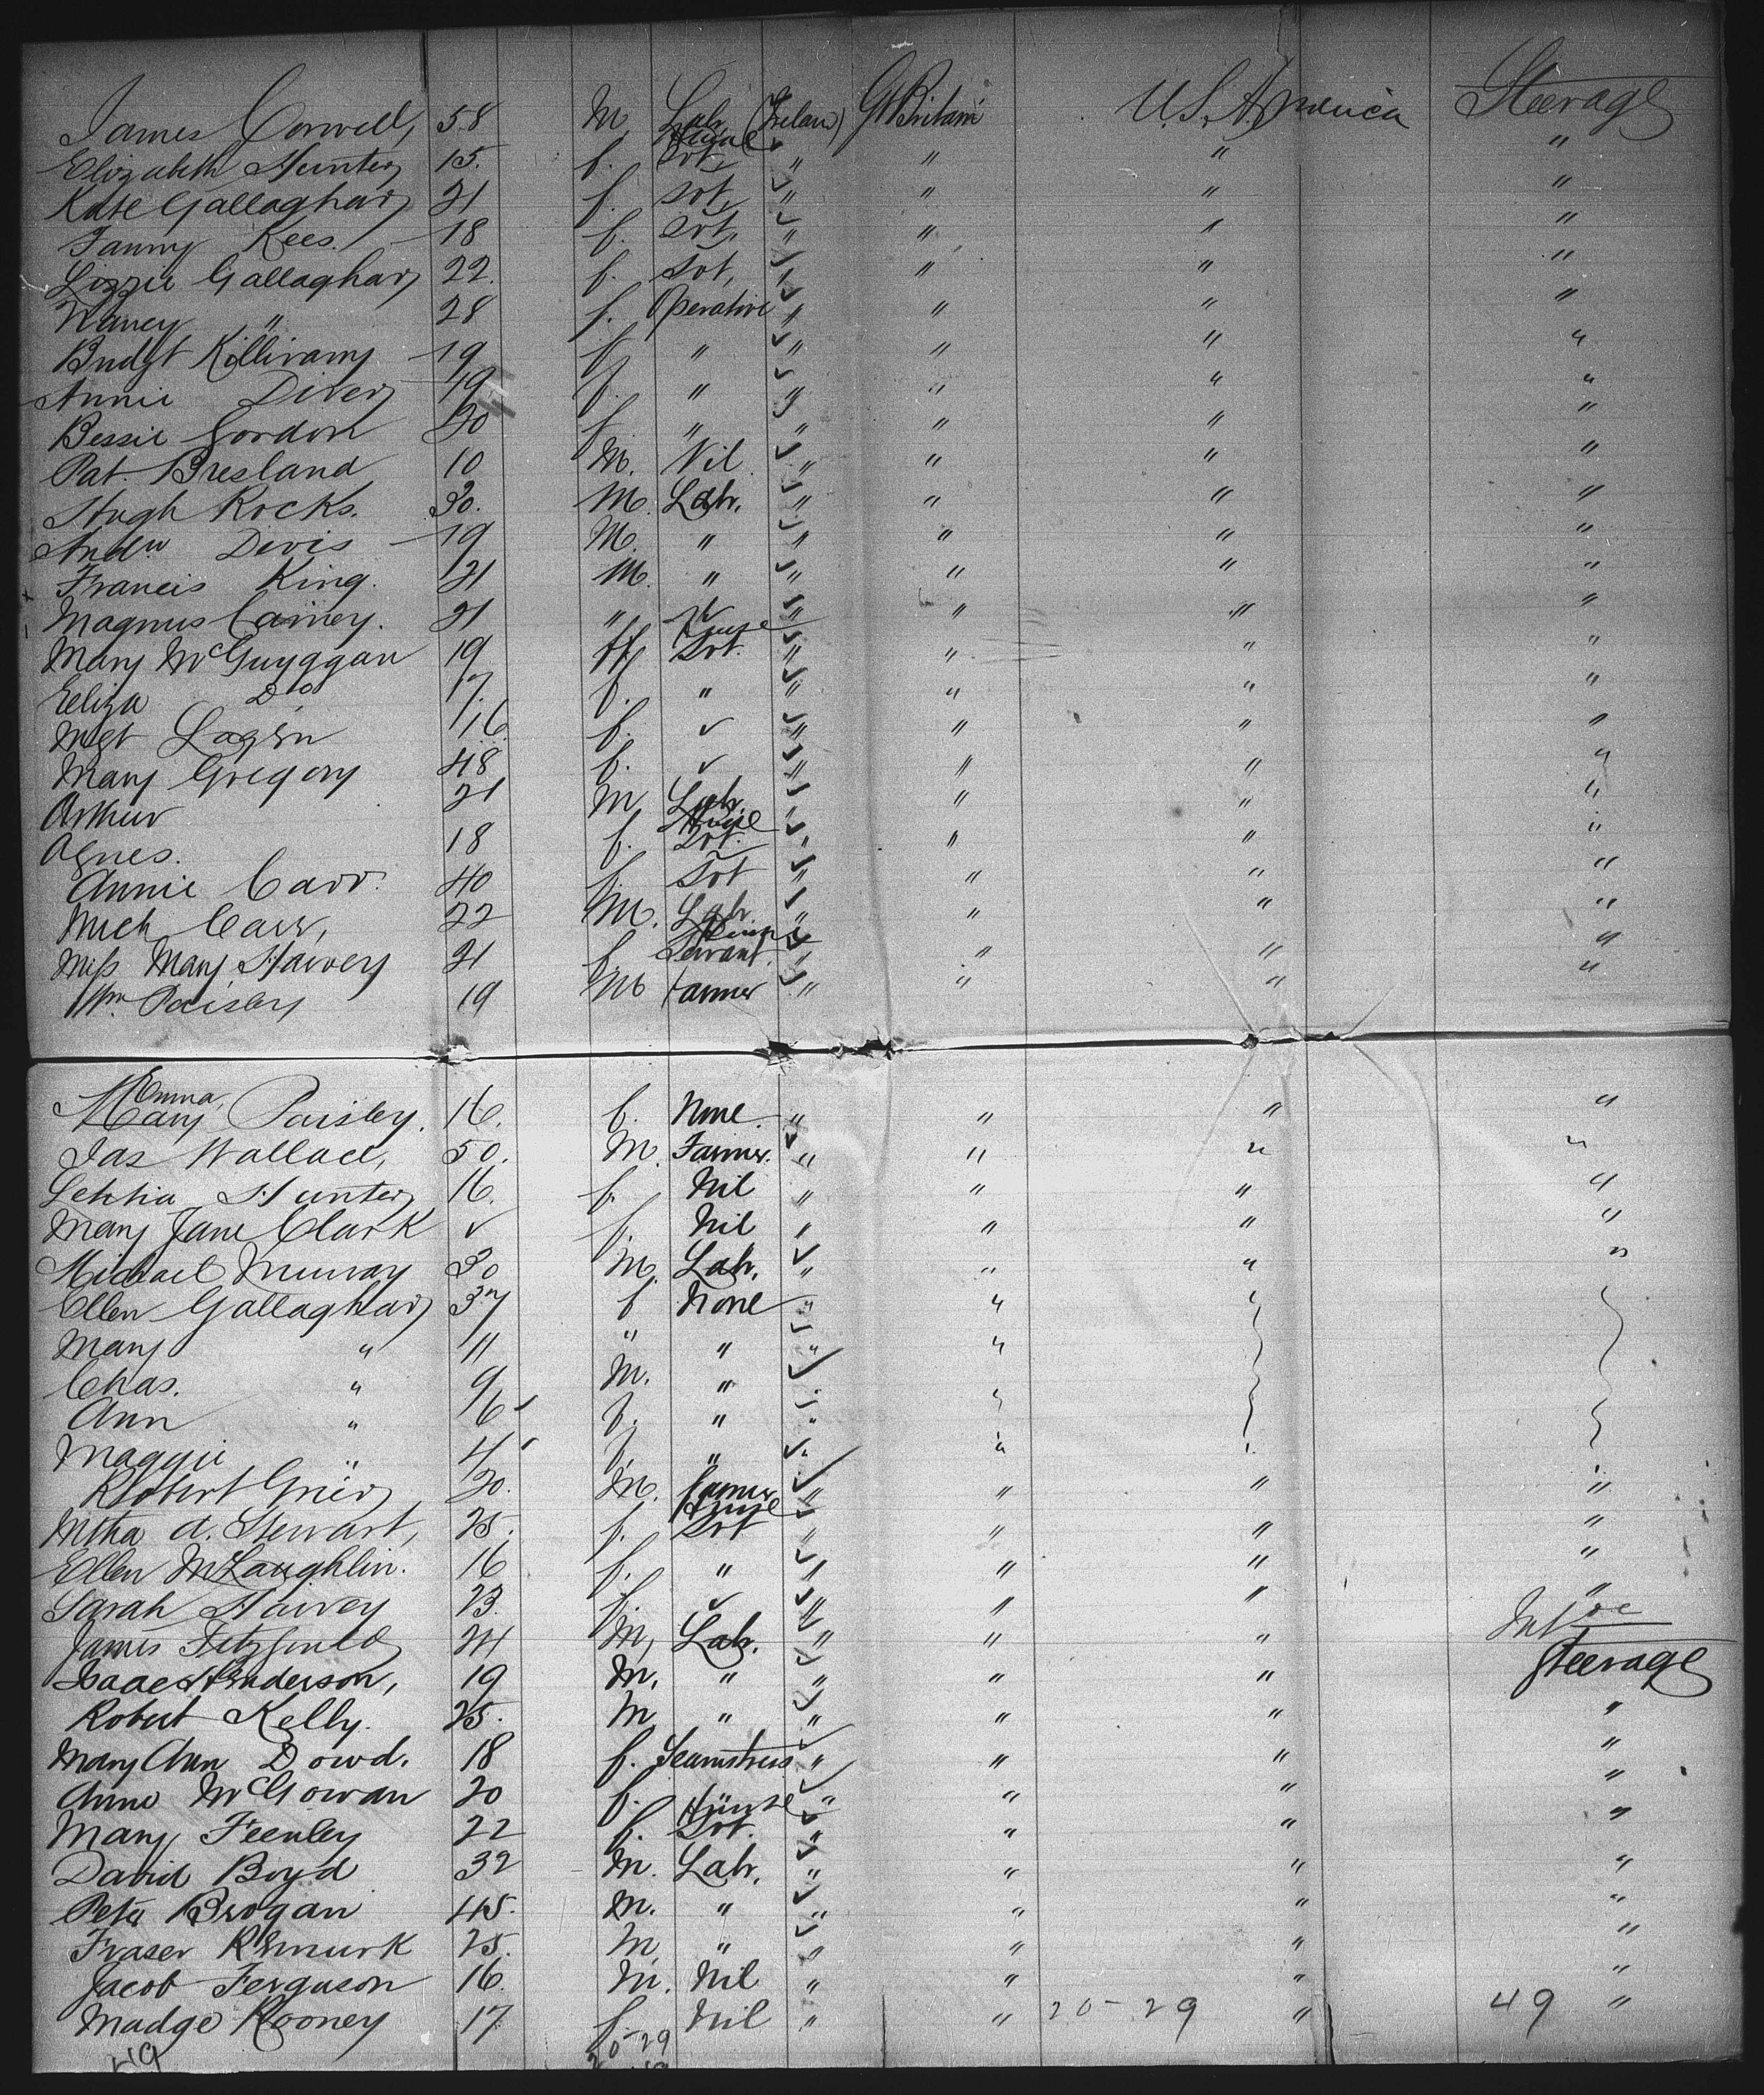 James Conwell, 58 M Labr (Ireland) Gt Britain U.S. America Steerage
Elizabeth Hunter 15. f. House Svt, " " " "
Kate Gallaghar 21 f. Svt, " " " "
Fanny Kees. 18 f. Svt, " " " "
Lizzie Gallaghar 22. f. Svt, " " " "
Nancy " 28 f. Operative " " " "
Bridgt Killivany 19 f " " " " "
Annie Diver 19 f. " " " " "
Bessie Gordon 20 f " " " " "
Pat. Bresland 10 M. Nil " " " "
Hugh Rocks. 30. M. Labr. " " " "
Andw Divis 19 M. " " " " "
Francis King. 21 M. " " " " "
Magnus Cainey. 21 " " " " " "
Mary McGuyggan 19 f House Svt. " " " "
Eeliza Do 17. f. " " " " "
Mgt Logan 16 f. " " " " "
Mary Gregory 48 f. " " " " "
Arthur 21 M Labr. " " " "
Agnes. 18 f. House Svt. " " " "
Annie Carr. 40 f. Svt " " " "
Mich Carr, 22 M. Labr. " " " "
Miss Mary Harvey 21 f. House Servant. " " " "
Wm. Paisley 19 M Farmer " " " "
Emma,
Mary Paisley. 16. f. None. " " " "
Jas Wallace, 50. M. Farmer. " " " "
Letitia Hunter 16. f. Nil " " " "
Mary Jane Clark " f. Nil " " " "
Michael Murray 30 M. Labr. " " " "
Ellen Gallaghar 37 f None " " "
Mary " 11 " " " "
Chas. " 9 M. " " "
Ann " 6 f. " "
Maggie " 4 f. " " " "
Robert Grier 20. M. Farmer " " " "
Mtha A. Stewart, 25. f. House Svt " " " "
Ellen McLaughlin. 16 f. " " " " "
Sarah Harvey 23. f. " " " " "
James Fitzgerald 24 M, Labr. " " " Int
Isaac Anderson, 19 M. " " " " Steerage
Robert Kelly. 25. M " " " " "
Mary Ann Dowd. 18 f. Seamstress " " " "
Anne McGowan 20 f. " " " "
Mary Feenley 22 f. House Svt. " " " "
David Boyd 32 M. Labr. " " " "
Peter Brogan 45. M. " " " " "
Fraser 25. M " " " " "
Jacob Ferguson 16. M. Nil " " " "
Madge Rooney 17 f. Nil " " 20-29 " 49 "
49 20-29